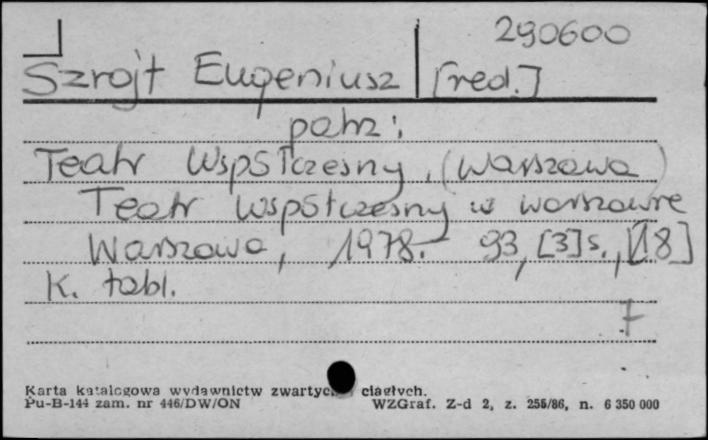 290600
Szrojt Eugeniusz [red.]
patrz:
Teatr Współczesny, (Warszawa)
Teatr Współczesny w Warszawie
Warszawa, 1978. 93, [3] s., [18]
K. tabl.
7
Karta katalogowa wydawnictw zwartych ciągłych.
Pu-B-144 zam. nr 446/DW/ON
WZGraf. Z-d 2, z. 255/86, n. 6 350 000